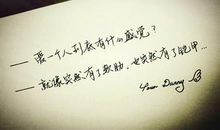 —— 爱一个人到底有什么感觉？
—— 就像突然有了软肋，也突然有了铠甲…